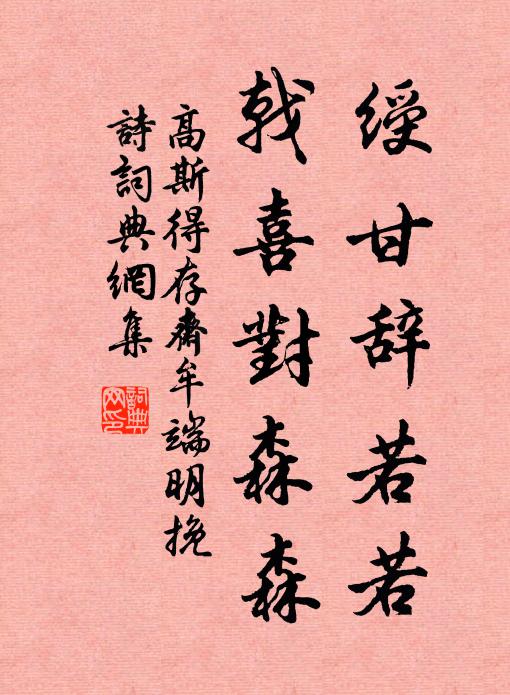 绶甘辞若若
戟喜對森森
高斯得存齋牟端明挽
詩詞典網集
詞典網印